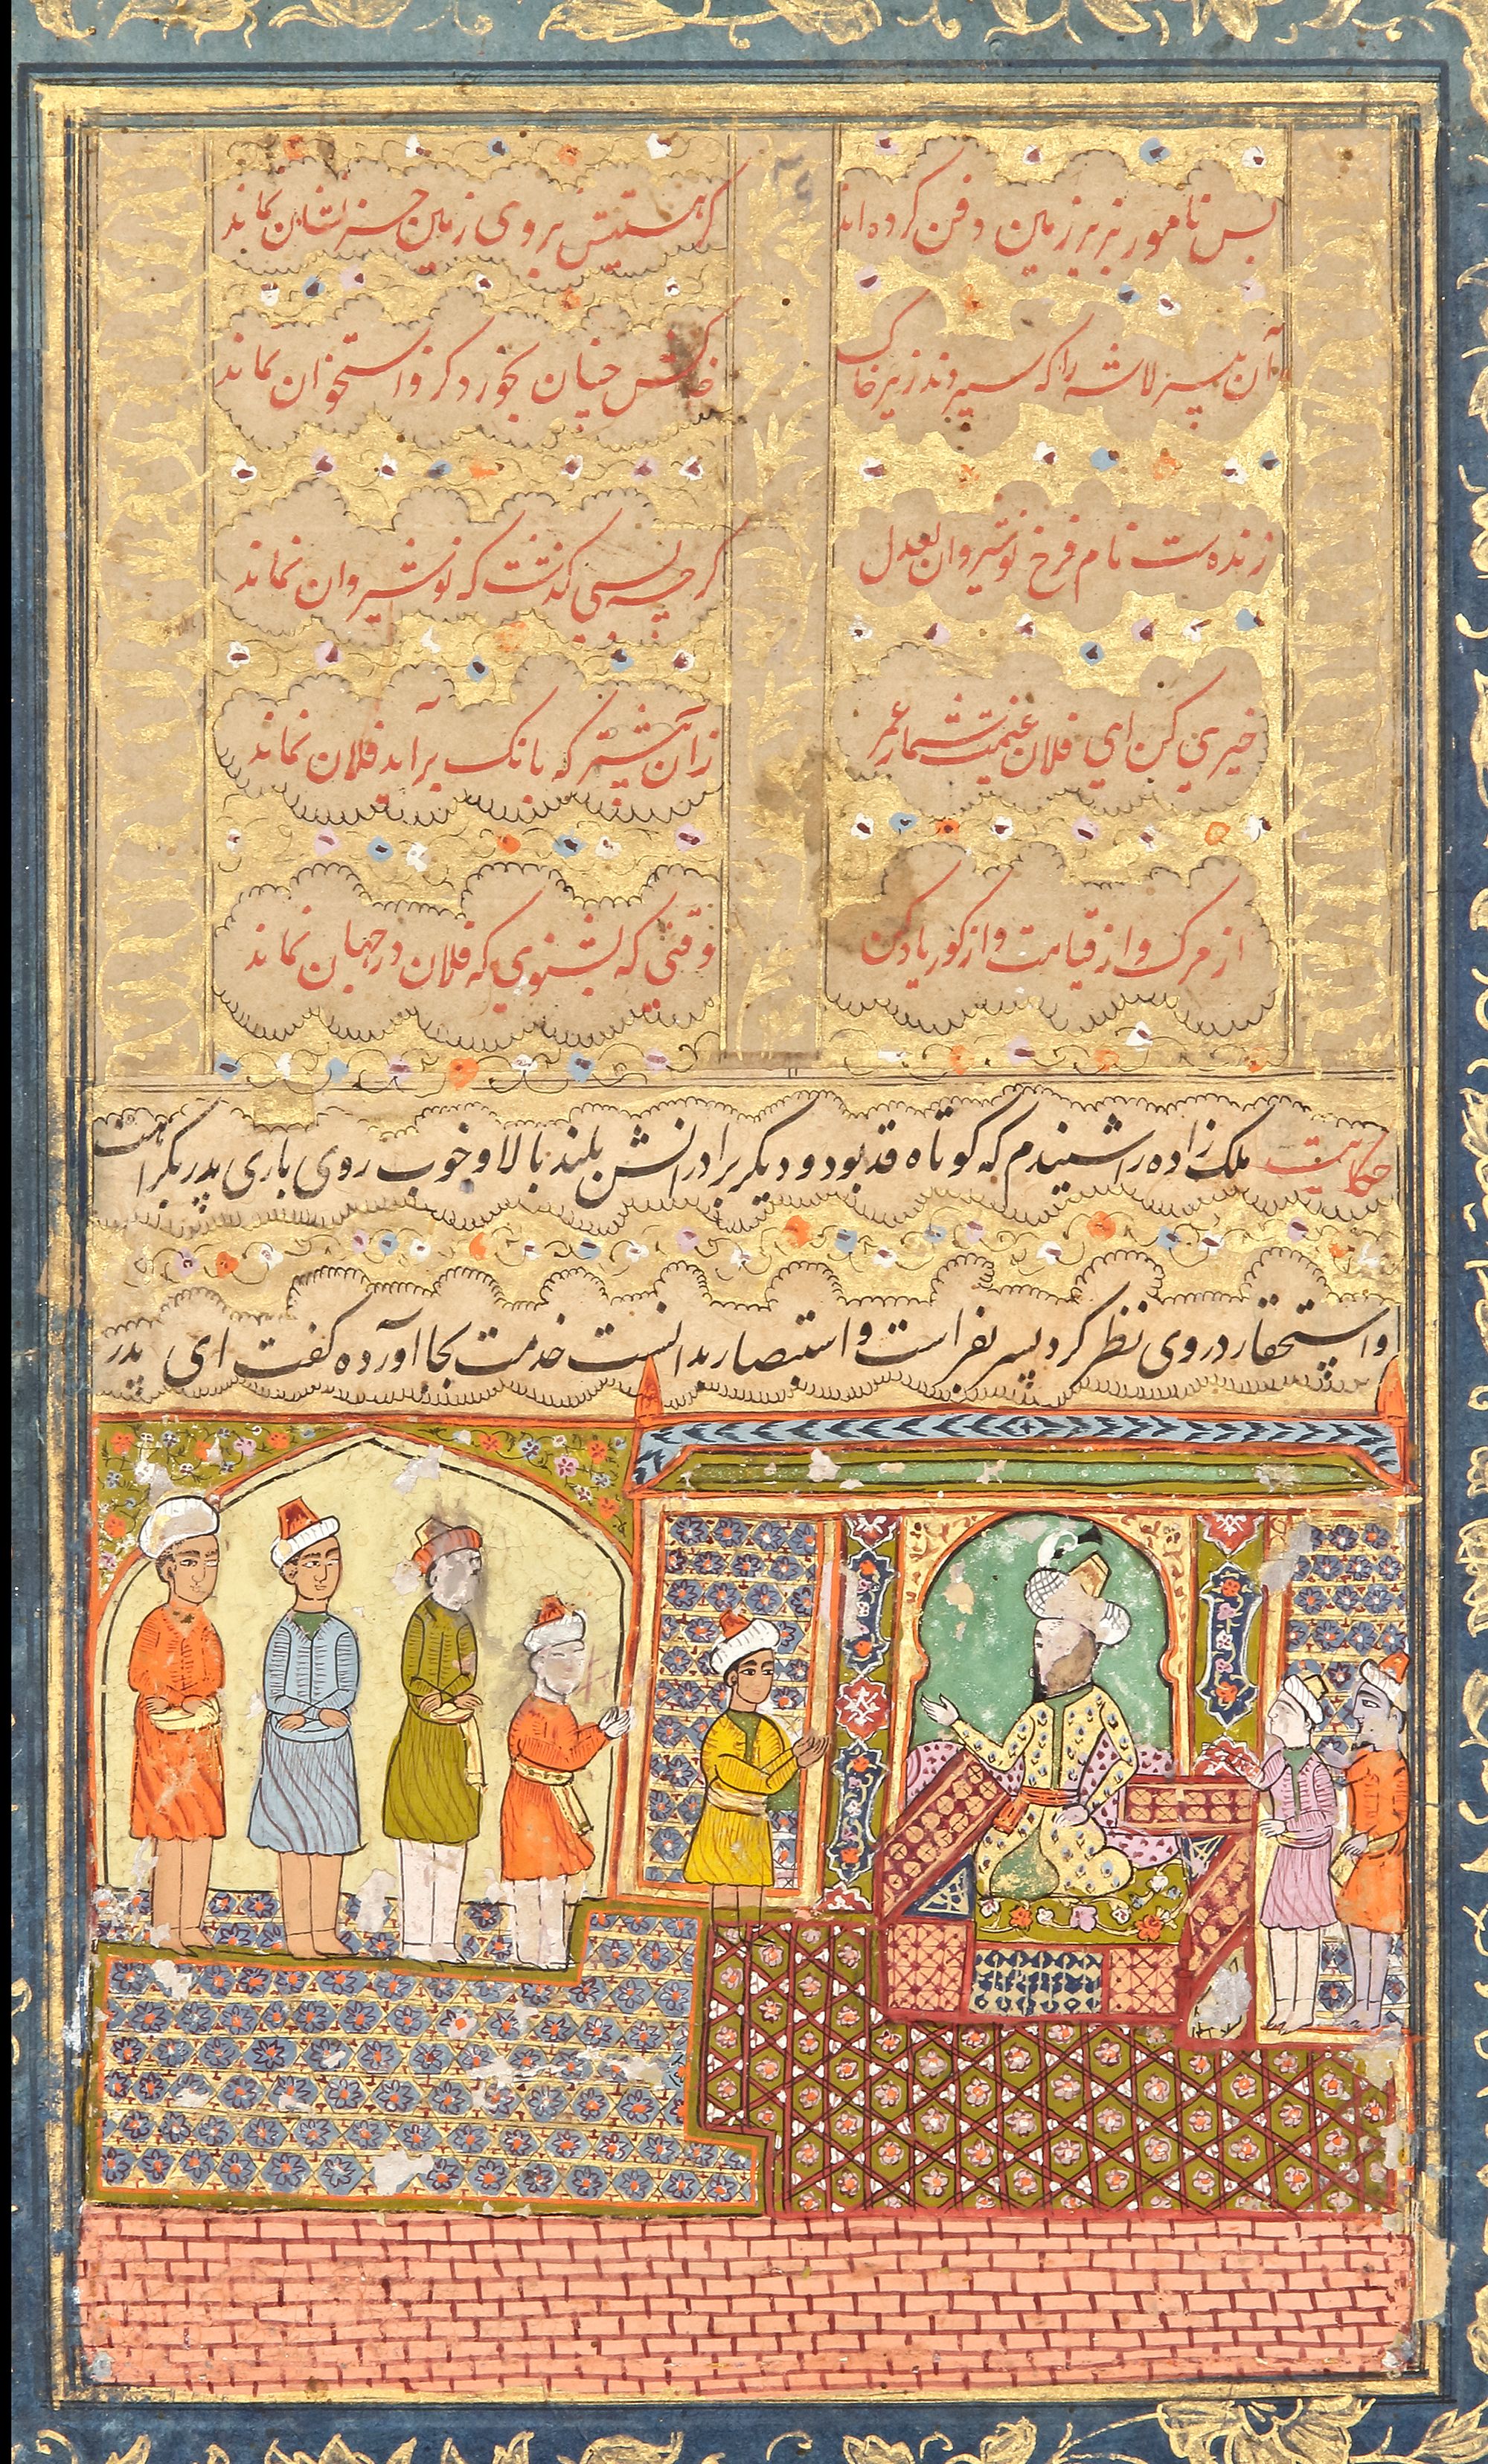 بس نامور بزیر زمین دفن کرده اند
کز هستیش بروی زمین بر نشان نماند
آن پیر لاشه را که سپردند زیر خاک
خاکش چنان بخورد کزو استخوان نماند
زنده ست نام فرخ نوشیروان بعدل
گرچه بسی گذشت که نوشیروان نماند
خیری کن ای فلان غنیمت شمار عمر
زان پیشتر که بانک برآید فلان نماند
از مرک و از قیامت و از کور یاد کن
وقتی که بشنوی که فلان در جهان نماند
حکایت ملک زاده را شنیدم که کوتاه قد بود و دیگر برادرانش بلند بالا و خوب روی باری پدر بکراهت
و استحقار در وی نظر کرد پسر بفراست و استبصار بدانست خدمت بجا آورده کفت ای پدر